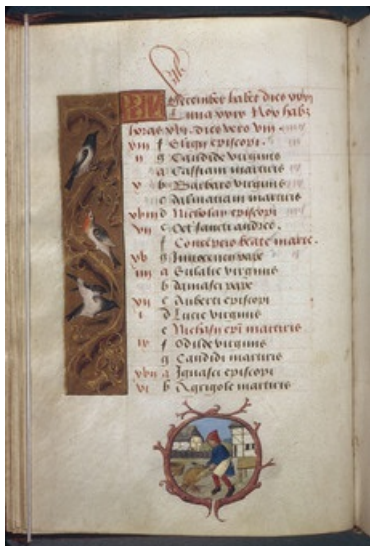 KL December habet dies xxxi
Luna xxix Nox habz
horas xviii dies vero viii
xiii f Eligii episcopi.
ii g Candide virginis
a Cassiani martiris
x b Barbare virginis
c dalmatiani martiris
xviii d Nicholay episcopi
vii e Oct sancti andree.
f Conceptio beate marie.
xv g Innocencii pape
iiii a Eulalie virginis
b damasci pape
xii c Auberti episcopi
i d Lucie virginis
e Nichasii epi martiris
ix f Odilde virginis
g Candidi martiris
xvii a Ignacii episcopi
vi b Agricole martiris